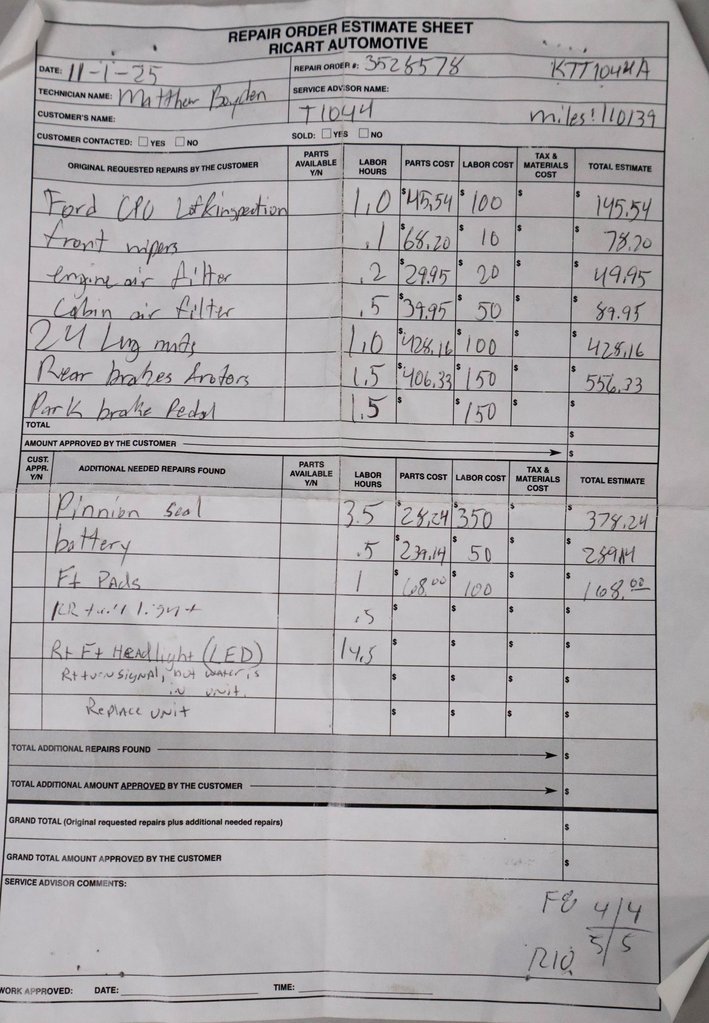 REPAIR ORDER ESTIMATE SHEET
RICART AUTOMOTIVE
DATE: 11-1-25 REPAIR ORDER #: 3528578 KTT1044A
TECHNICIAN NAME: Matthew Boyden SERVICE ADVISOR NAME:
CUSTOMER'S NAME: T1044 miles! 110139
CUSTOMER CONTACTED: YES NO SOLD: YES NO
ORIGINAL REQUESTED REPAIRS BY THE CUSTOMER PARTS AVAILABLE Y/N LABOR HOURS PARTS COST LABOR COST TAX & MATERIALS COST TOTAL ESTIMATE
Ford CPO 1.0 $45.54 $100 $ $145.54
front wipers .1 $68.20 $10 $ $78.20
engine air filter .2 $29.95 $20 $ $49.95
Cabin air filter .5 $39.95 $50 $ $89.95
24 Lug nuts 1.0 $428.16 $100 $ $428.16
Rear brakes & rotors 1.5 $406.33 $150 $ $556.33
Park brake Pedal 1.5 $ $150 $ $
TOTAL $
AMOUNT APPROVED BY THE CUSTOMER $
CUST. APPR. Y/N ADDITIONAL NEEDED REPAIRS FOUND PARTS AVAILABLE Y/N LABOR HOURS PARTS COST LABOR COST TAX & MATERIALS COST TOTAL ESTIMATE
Pinnion seal 3.5 $28.24 $350 $ $378.24
battery .5 $239.14 $50 $ $289.14
Ft PADS 1 $68.00 $100 $ $168.00
RR tail light .5 $ $ $ $
Rt Ft HEADlight (LED) 14.5 $ $ $ $
Rt turn SIGNAL, but WATER is
in unit. $ $ $ $
REPLACE UNIT $ $ $ $
TOTAL ADDITIONAL REPAIRS FOUND $
TOTAL ADDITIONAL AMOUNT APPROVED BY THE CUSTOMER $
GRAND TOTAL (Original requested repairs plus additional needed repairs) $
GRAND TOTAL AMOUNT APPROVED BY THE CUSTOMER $
SERVICE ADVISOR COMMENTS:
F8 4/4
R10 5/5
WORK APPROVED: DATE: TIME: